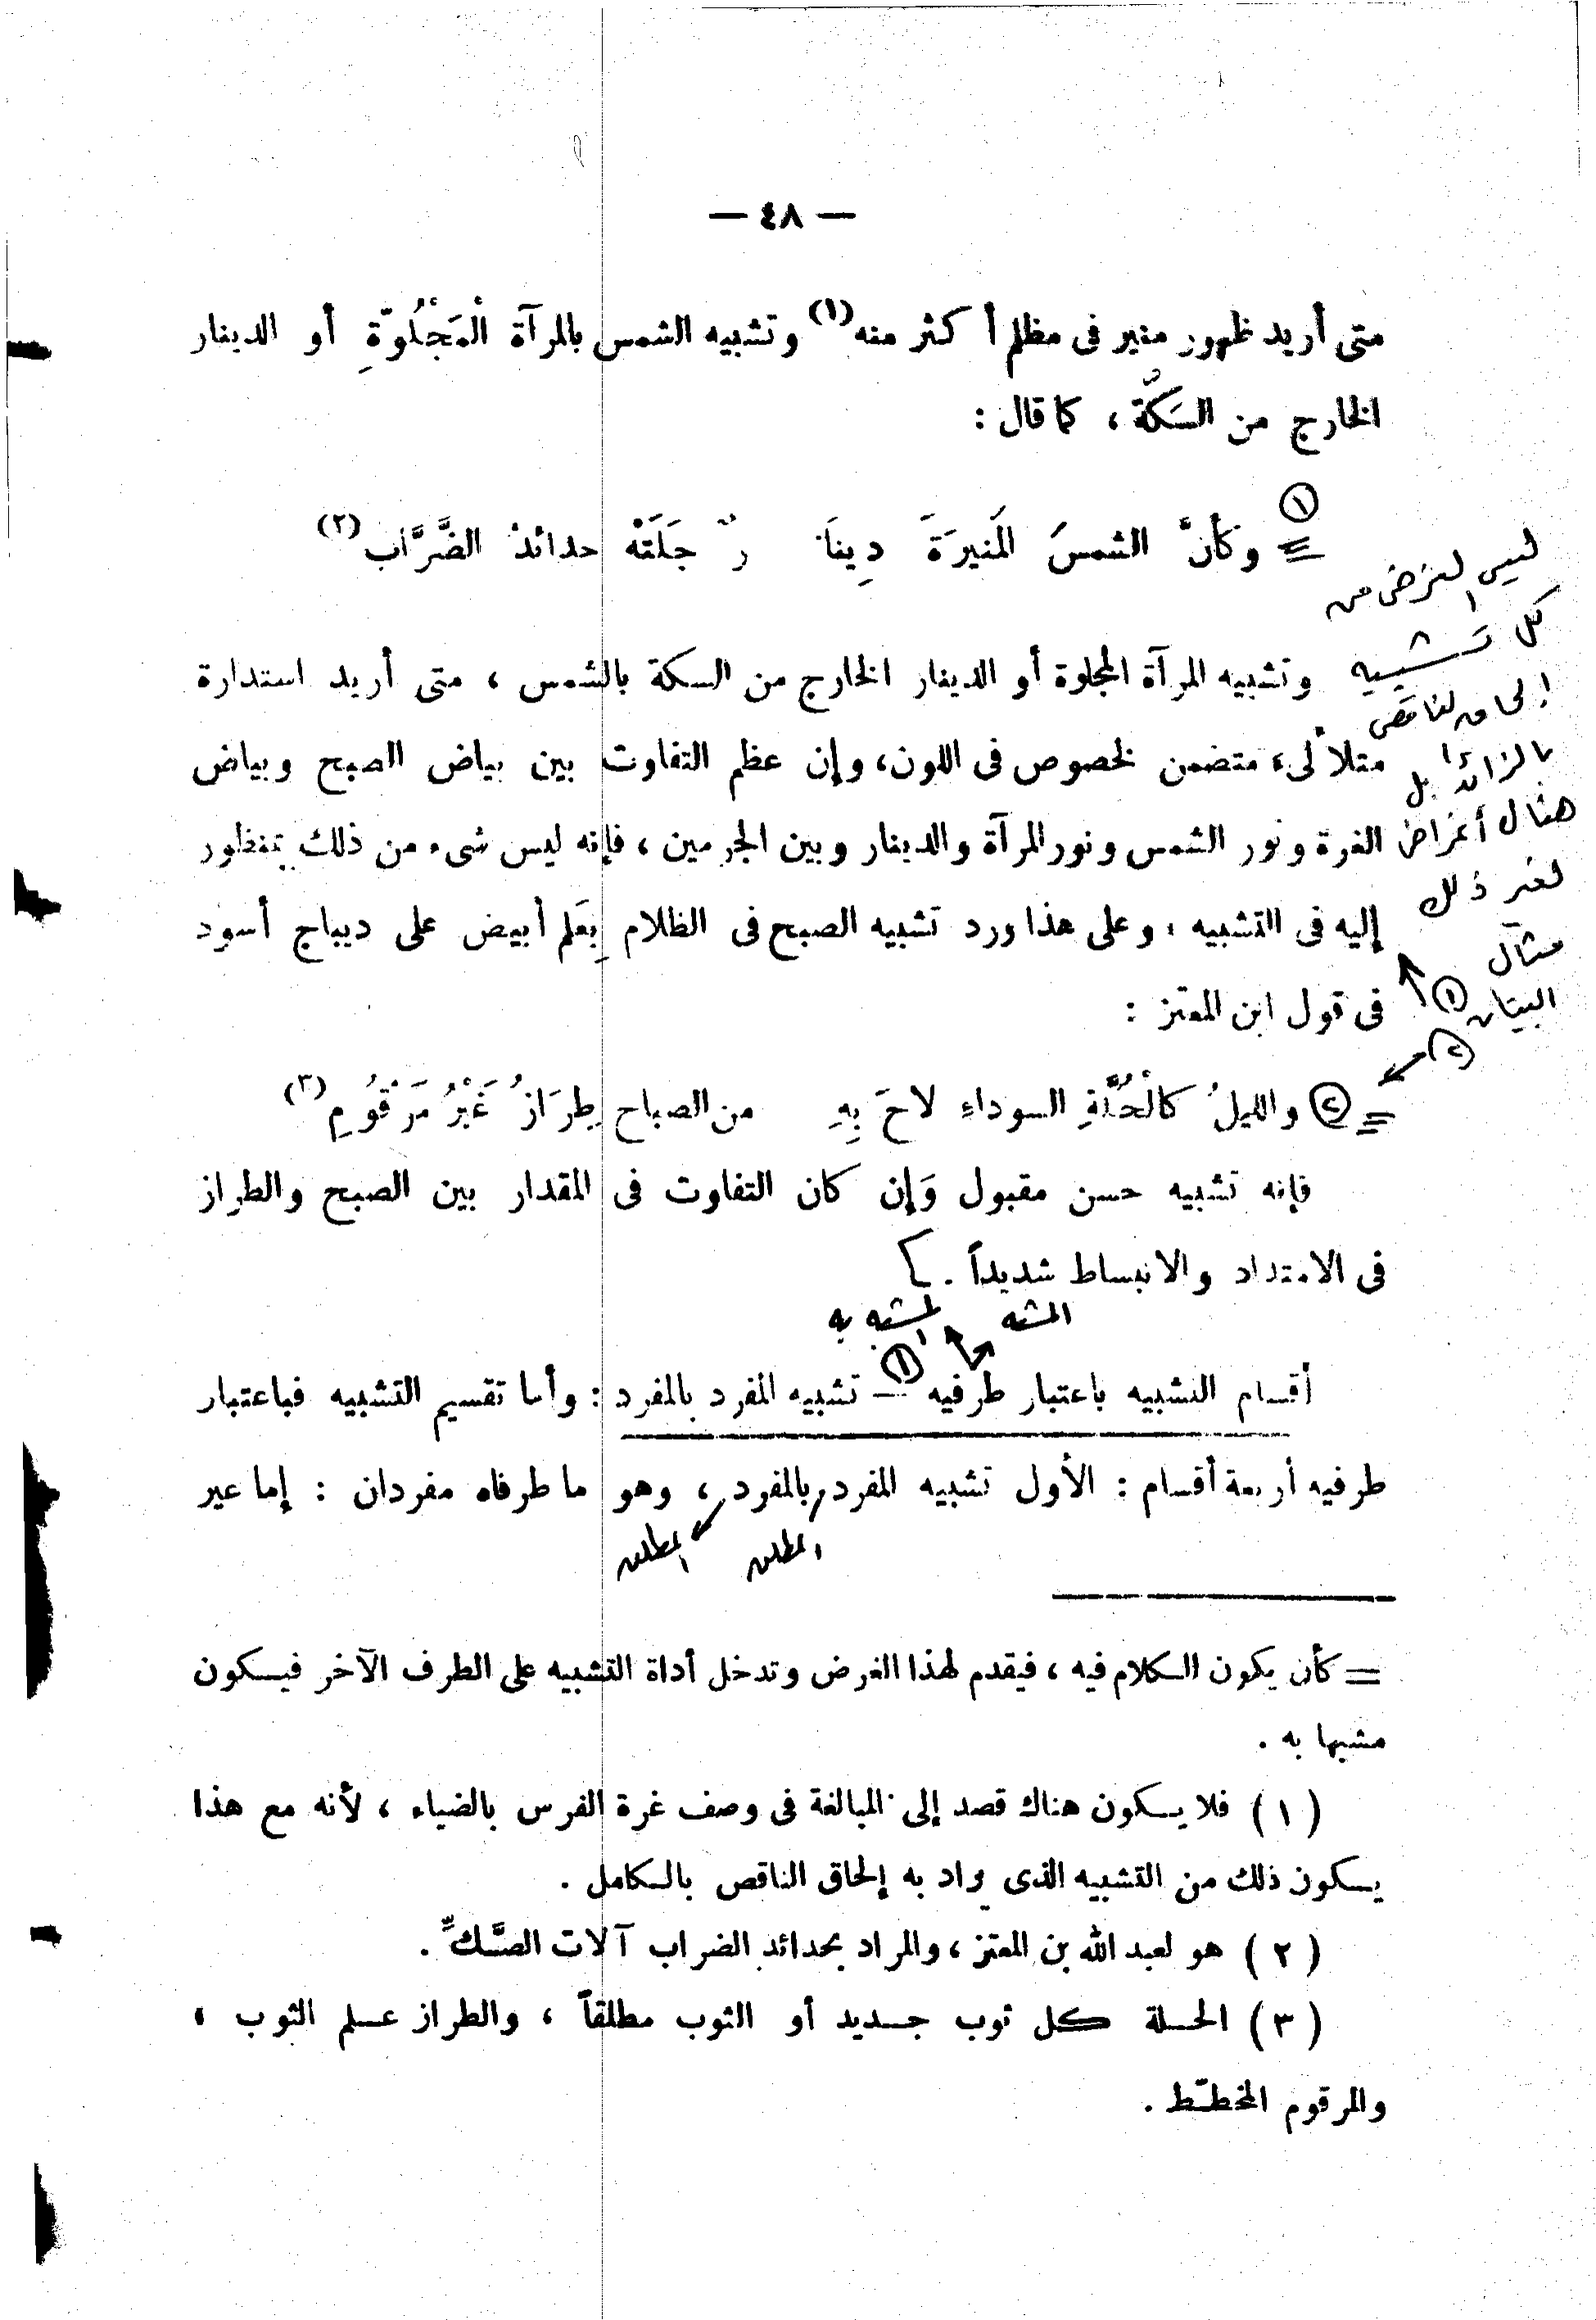 — ٤٨ —
متى أريد ظهور منير فى مظلم أكثر منه (١) وتشبيه الشمس بالمرآة الْمَجْلُوّةِ أو الدينار
الخارج من السَكّة ، كما قال :
① وكأنَّ الشمسَ المنيرَةَ دِينَا رٌ جَلَتْهُ حدائدُ الضَّرَّاب (٢)
ليس الغرض من
كل تشبيه
إلحاق الناقص
بالزائد بل
هناك أغراض
لغير ذلك
مثال
البيتان ① ②
وتشبيه المرآة المجلوة أو الدينار الخارج من السكة بالشمس ، متى أريد استدارة
متلألىء متضمن لخصوص فى اللون، وإن عظم التفاوت بين بياض الصبح وبياض
الغرة ونور الشمس ونور المرآة والدينار وبين الجرمين ، فإنه ليس شىء من ذلك بمنظور
إليه فى التشبيه ، وعلى هذا ورد تشبيه الصبح فى الظلام بِعَلم أبيض على ديباج أسود
فى قول ابن المعتز :
② والليلُ كالْحُلَّةِ السوداءِ لاحَ بِهِ من الصباح طِرَازٌ غَيْرُ مَرْقُومِ (٣)
فإنه تشبيه حسن مقبول وَإن كان التفاوت فى المقدار بين الصبح والطراز
فى الامتداد والانبساط شديداً .
المشبه المشبه به
أقسام التشبيه باعتبار طرفيه ① — تشبيه المفرد بالمفرد : وأما تقسيم التشبيه فباعتبار
طرفيه أربعة أقسام : الأول تشبيه المفرد بالمفرد ، وهو ما طرفاه مفردان : إما غير
المطلق المطلق
= كأن يكون الكلام فيه ، فيقدم لهذا الغرض وتدخل أداة التشبيه على الطرف الآخر فيكون
مشبها به .
( ١ ) فلا يكون هناك قصد إلى المبالغة فى وصف غرة الفرس بالضياء ، لأنه مع هذا
يكون ذلك من التشبيه الذى يراد به إلحاق الناقص بالكامل .
( ٢ ) هو لعبد الله بن المعتز ، والمراد بحدائد الضراب آلات الصَّكِّ .
( ٣ ) الحلة كل ثوب جديد أو الثوب مطلقاً ، والطراز علم الثوب ،
والمرقوم المخطّط .